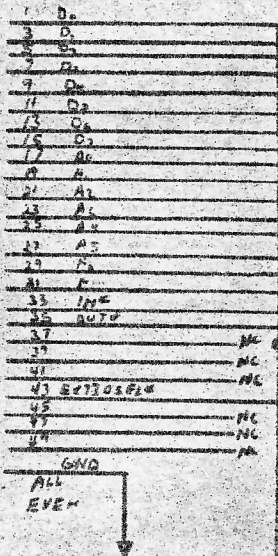 1 D0
3 D1
5 D2
7 D3
9 D4
11 D5
13 D6
15 D7
17 A0
19 A1
21 A2
23 A3
25 A4
27 A5
29 A6
31 A
33 IN*
35 OUT*
37 NC
39 NC
41
43 EXTIOSEL*
45 NC
47 NC
49
GND
ALL
EVEN